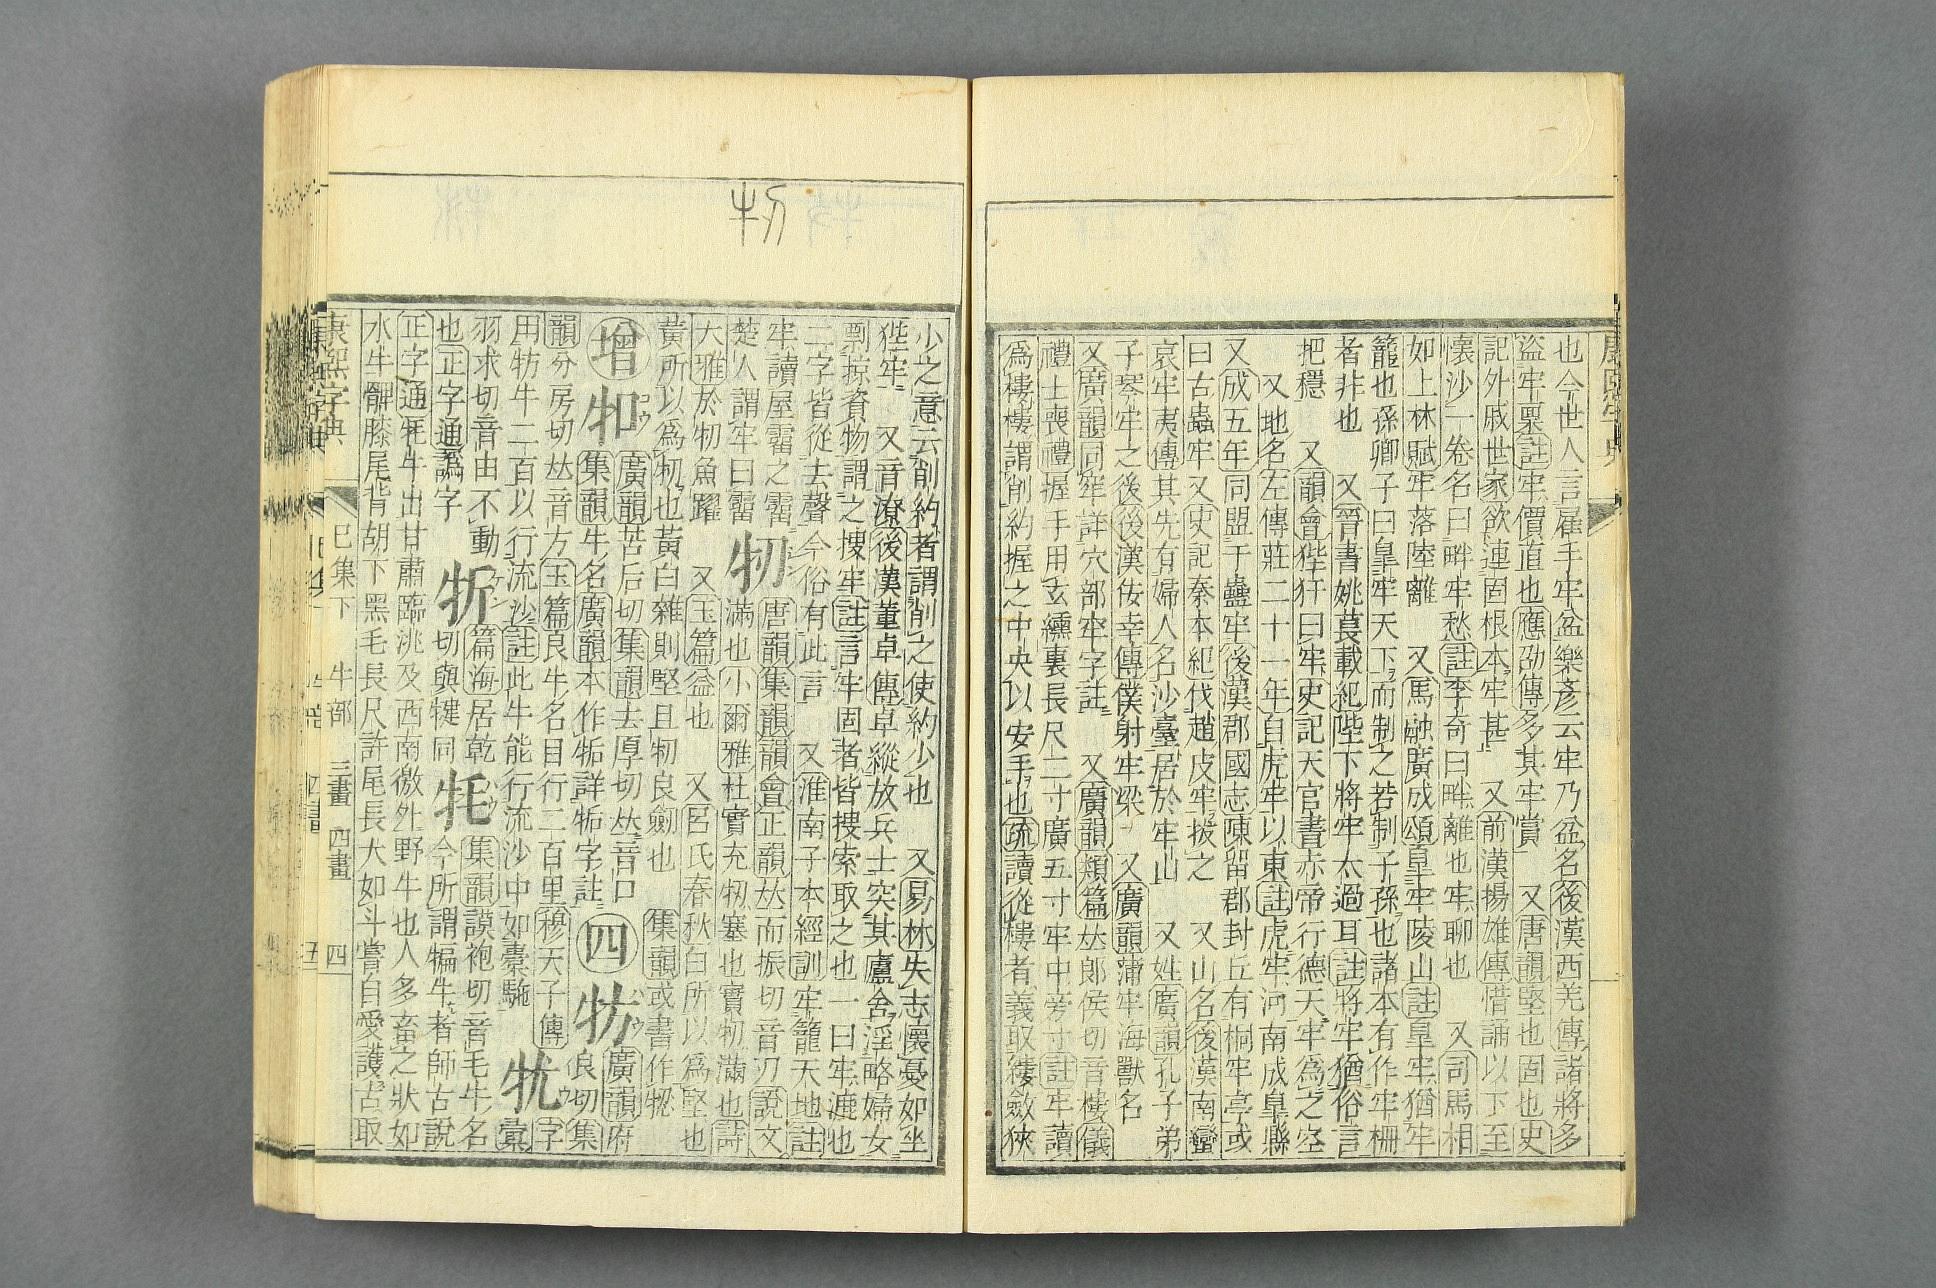 也今世人言雇手牢盆樂彥云牢乃盆名後漢西羌傳諸將多
盜牢稟註牢價直也應劭傳多其牢賞 又唐韻堅也固也史
記外戚世家欲連固根本牢甚 又前漢揚雄傳惜誦以下至
懷沙一卷名曰畔牢愁註李奇曰畔離也牢聊也 又司馬相
如上林賦牢落陸離 又馬融廣成頌皐牢陵山註皐牢猶牢
籠也孫卿子曰皐牢天下而制之若制子孫也諸本有作牢柵
者非也 又晉書姚萇載紀陛下將牢太過耳註將牢猶俗言
把穩 又韻會狴犴曰牢史記天官書赤帝行德天牢爲之空
又地名左傳莊二十一年自虎牢以東註虎牢河南成皐縣
又成五年同盟于蠱牢後漢郡國志陳留郡封丘有桐牢亭或
曰古蟲牢又史記秦本紀伐趙皮牢拔之 又山名後漢南蠻
哀牢夷傳其先有婦人名沙臺居於牢山 又姓廣韻孔子弟
子琴牢之後後漢佞幸傳僕射牢梁 又廣韻蒲牢海獸名
又廣韻同窂詳穴部窂字註 又廣韻類篇𠀤郎侯切音樓儀
禮士喪禮握手用玄纁裏長尺二寸廣五寸牢中旁寸註牢讀
爲樓樓謂削約握之中央以安手也疏讀從樓者義取縷斂狹
少之意云削約者謂削之使約少也 又易林失志懷憂如坐
狴牢 又音潦後漢董卓傳卓縱放兵士突其廬舍淫略婦女
剽掠資物謂之搜牢註言牢固者皆搜索取之也一曰牢漉也
二字皆從去聲今俗有此言 又淮南子本經訓牢籠天地註
牢讀屋霤之霤
楚人謂牢曰霤 牣 唐韻集韻韻會正韻𠀤而振切音刃說文
滿也小爾雅杜實充牣塞也實牣滿也詩
大雅於牣魚躍 又玉篇益也 又呂氏春秋白所以爲堅也
黃所以爲牣也黃白雜則堅且牣良劒也 集韻或書作牰
增 𤘘 廣韻苦后切集韻去厚切𠀤音口
集韻牛名廣韻本作㸸詳㸸字註 四 牥 廣韻府
良切集
韻分房切𠀤音方玉篇良牛名日行二百里穆天子傳
用牥牛二百以行流沙註此牛能行流沙中如橐駞 牰 字
彙
羽求切音由不動
也正字通譌字 㸫 篇海居乾
切與犍同 㸹 集韻謨袍切音毛牛名
今所謂犏牛者師古說
正字通㸹牛出甘肅臨洮及西南徼外野牛也人多畜之狀如
水牛髀膝尾背胡下黑毛長尺許尾長大如斗嘗自愛護古取
康熙字典
巳集下 牛部 三畫 四畫 四
牣